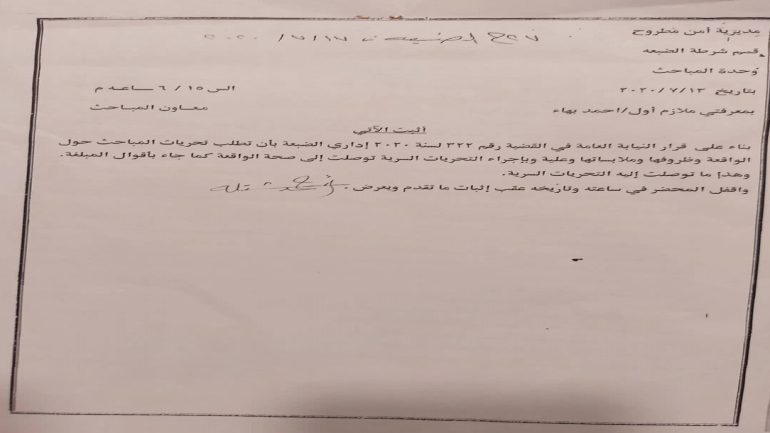 مديرية أمن مطروح
قسم شرطة الضبعه
وحدة المباحث
بتاريخ ٢٠٢٠/٧/١٣ الس ٦/١٥ ساعه م
بمعرفتي ملازم أول/احمد بهاء معاون المباحث
أثبت الآتي
بناء على قرار النيابة العامة في القضية رقم ٣٢٢ لسنة ٢٠٢٠ إداري الضبعة بأن تطلب تحريات المباحث حول
الواقعة وظروفها وملابساتها وعلية وبإجراء التحريات السرية توصلت إلى صحة الواقعة كما جاء بأقوال المبلغة.
وهذا ما توصلت إليه التحريات السرية.
واقفل المحضر في ساعته وتاريخه عقب إثبات ما تقدم ويعرض.